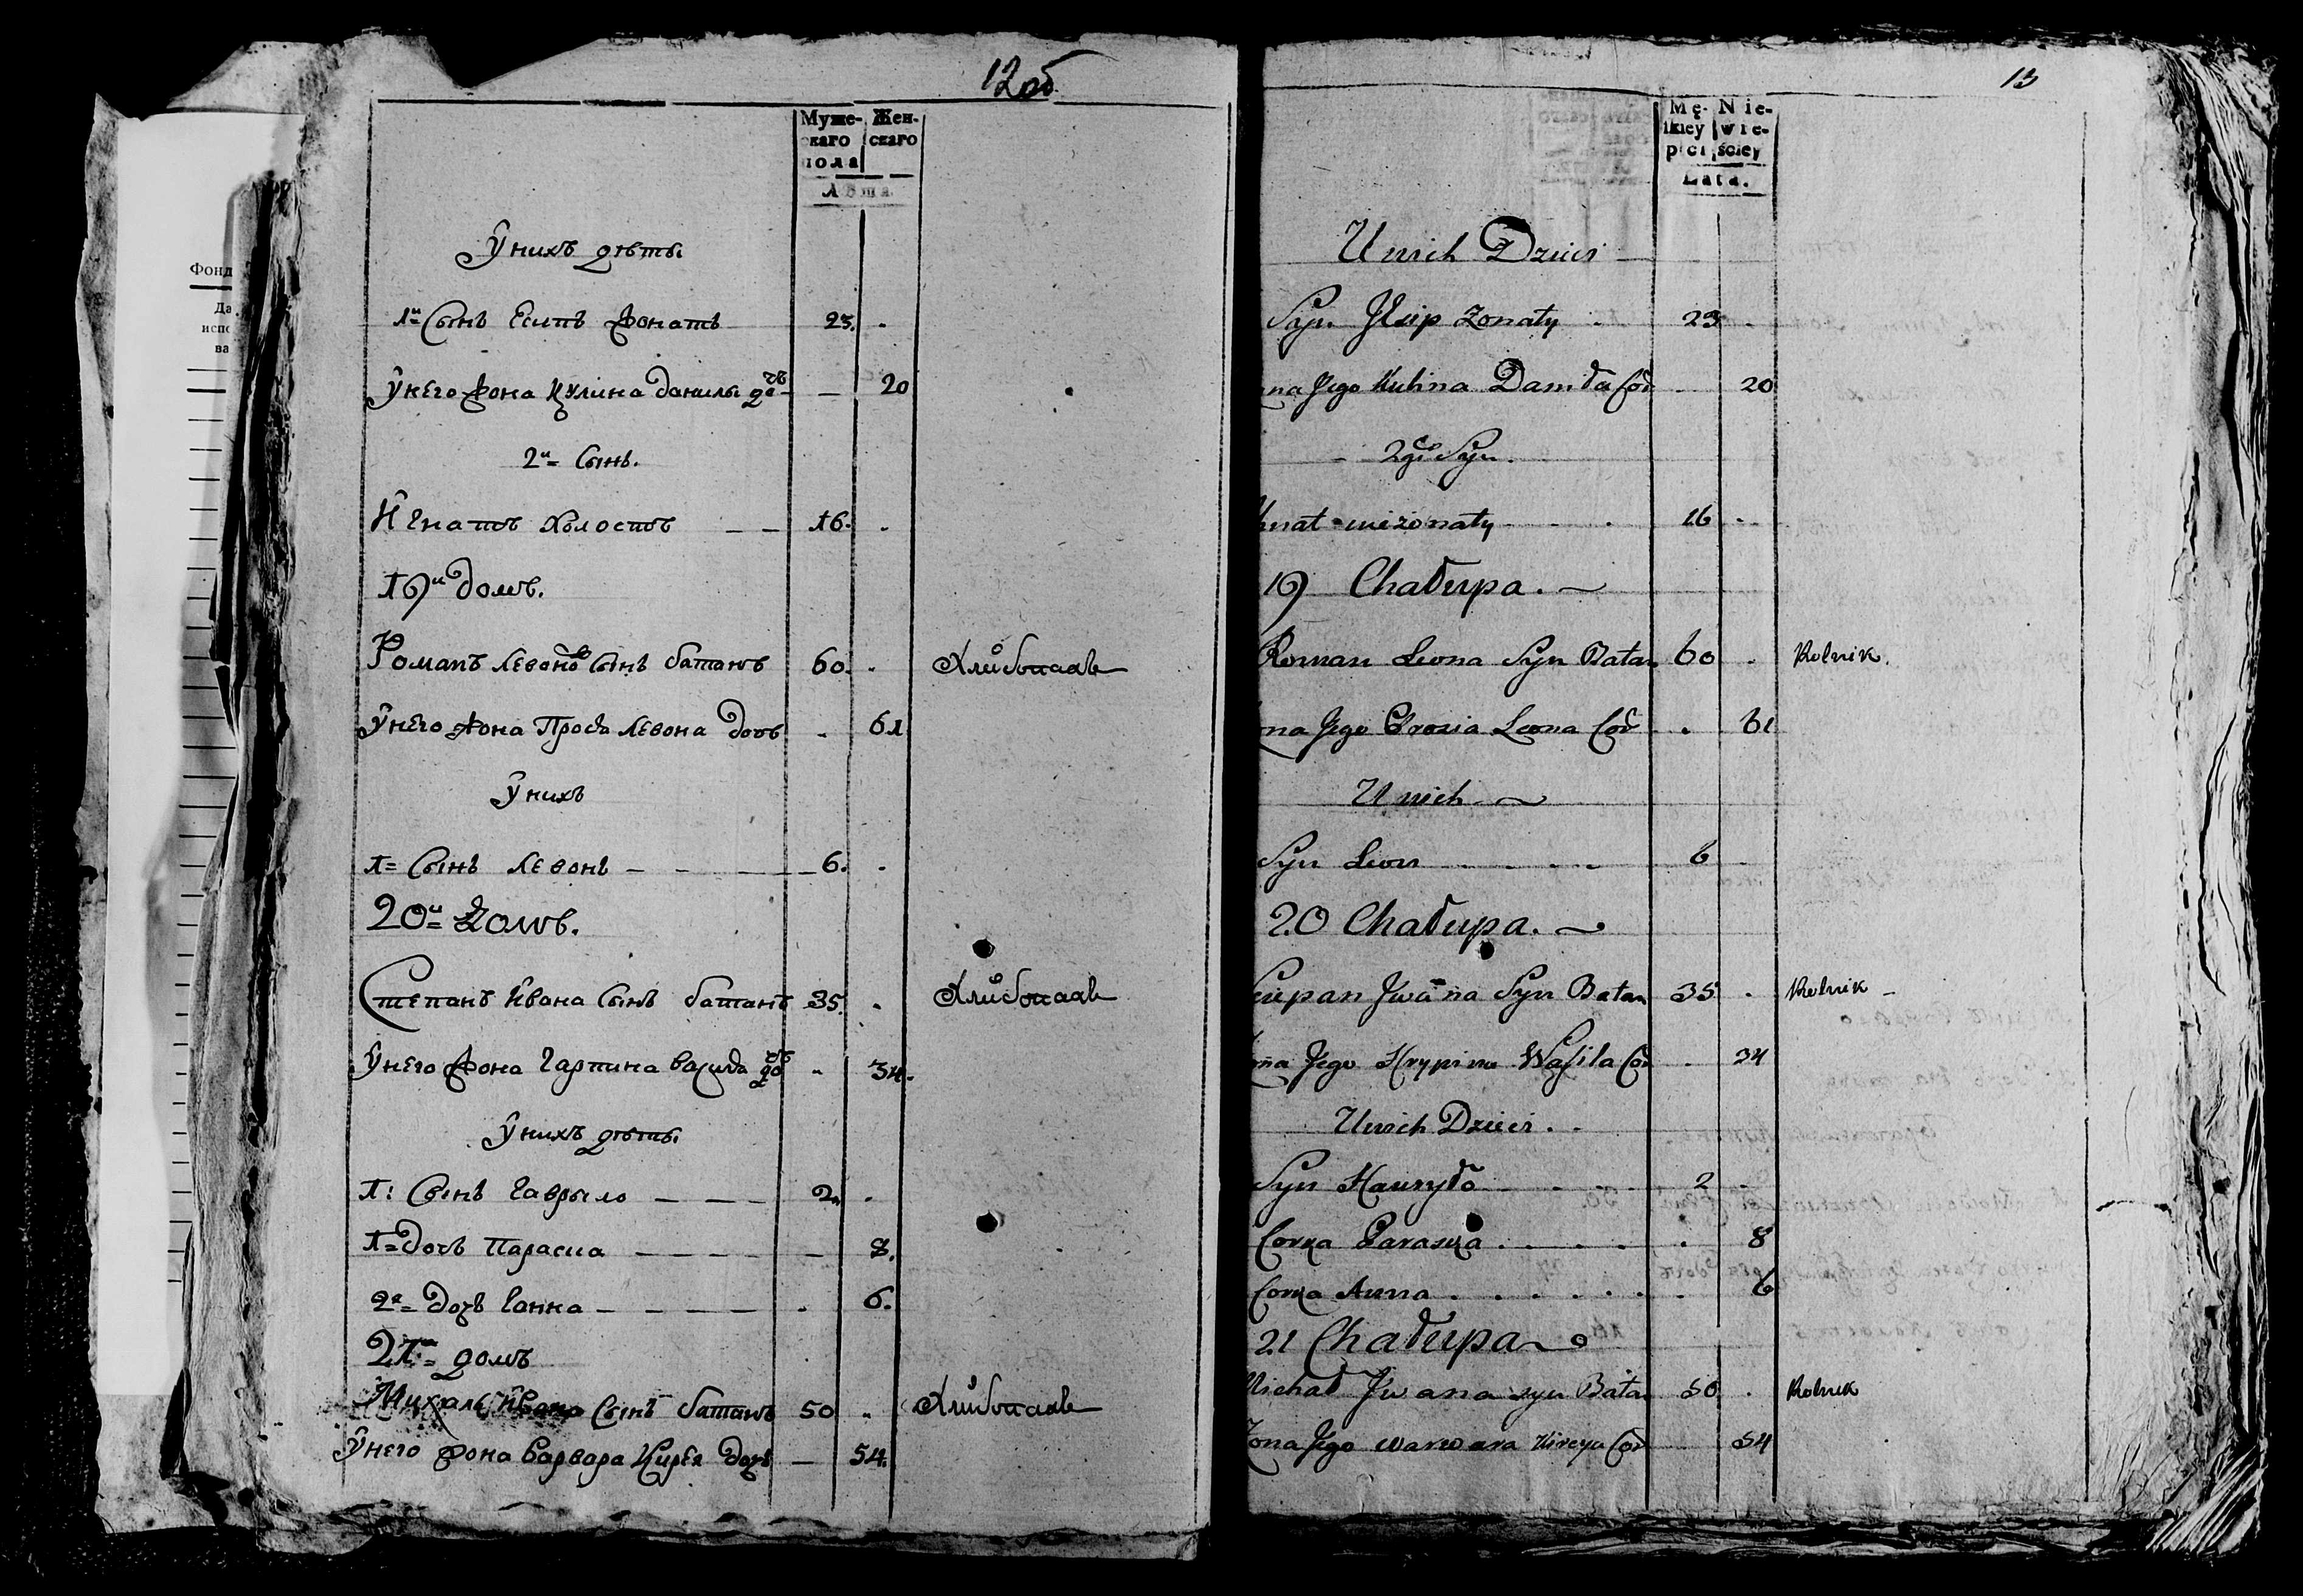 12об
Муже- Жен-
скаго скаго
пола
Лѣта
Фонд
Да
испо
ва
Ў нихъ дѣты
1й Сынъ Есипъ жонатъ 23.
Ў него жона Кулина данилы дочь 20
2й= Сынъ.
Игнатъ холостъ 16.
19й домъ.
Романъ Левона Сынъ батанъ 60. Хлибопашъ
Ў него жона Прося Левона дочъ 61
Ў нихъ
1= Сынъ Левонъ 6.
20й= Домъ.
Степанъ Ивана Сынъ батанъ 35. Хлибопашъ
Ў него жона Гарпина василя дочъ 34.
Ў нихъ дѣты
1: Сынъ Гаврыло 2.
1= дочъ Параска 8.
2я= дочъ Ганна 6.
21й= домъ
Михаль Ивана Сынъ батанъ 50 Хлибопашъ
Ў него жона Варвара Кирея дочъ 54.
13
Mę- Nie-
skiey wie-
płci ściey
Lata.
U nich Dzieci
Syn Jesip zonaty 23
na Jego Kulina Daniła Cor 20
2gi Syn.
hnat niezonaty 16
19 Chałupa.
Roman Leona Syn Batan 60 Rolnik.
ona Jego Prosia Leona Cor 61
U nich
Syn Leon 6
20 Chałupa.
ciepan Jwana Syn Batan 35 Rolnik
ona Jego Hrypina Wasila Cor 34
U nich Dzieci.
Syn Hauryło 2
Corka Paraska 8
Corka Anna 6
21 Chałupa
Michał Jwana syn Batan 50 Rolnik
Zona Jego warwara Kireya Cor 54